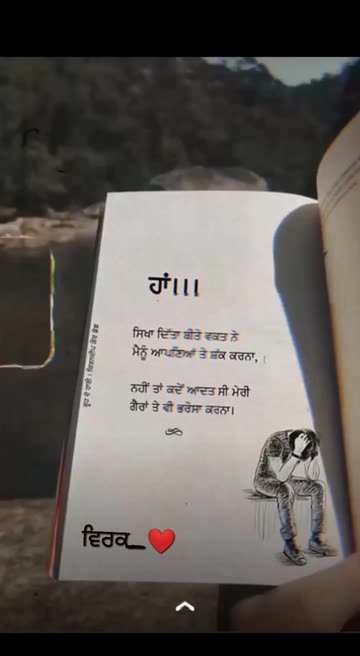 ਹਾਂ।।।
ਸਿਖਾ ਦਿੱਤਾ ਬੀਤੇ ਵਕਤ ਨੇ
ਮੈਨੂੰ ਆਪਣਿਆਂ ਤੇ ਸ਼ੱਕ ਕਰਨਾ,
ਨਹੀਂ ਤਾਂ ਕਦੇਂ ਆਦਤ ਸੀ ਮੇਰੀ
ਗੈਰਾਂ ਤੇ ਵੀ ਭਰੋਸਾ ਕਰਨਾ।
ਵਿਰਕ_❤️